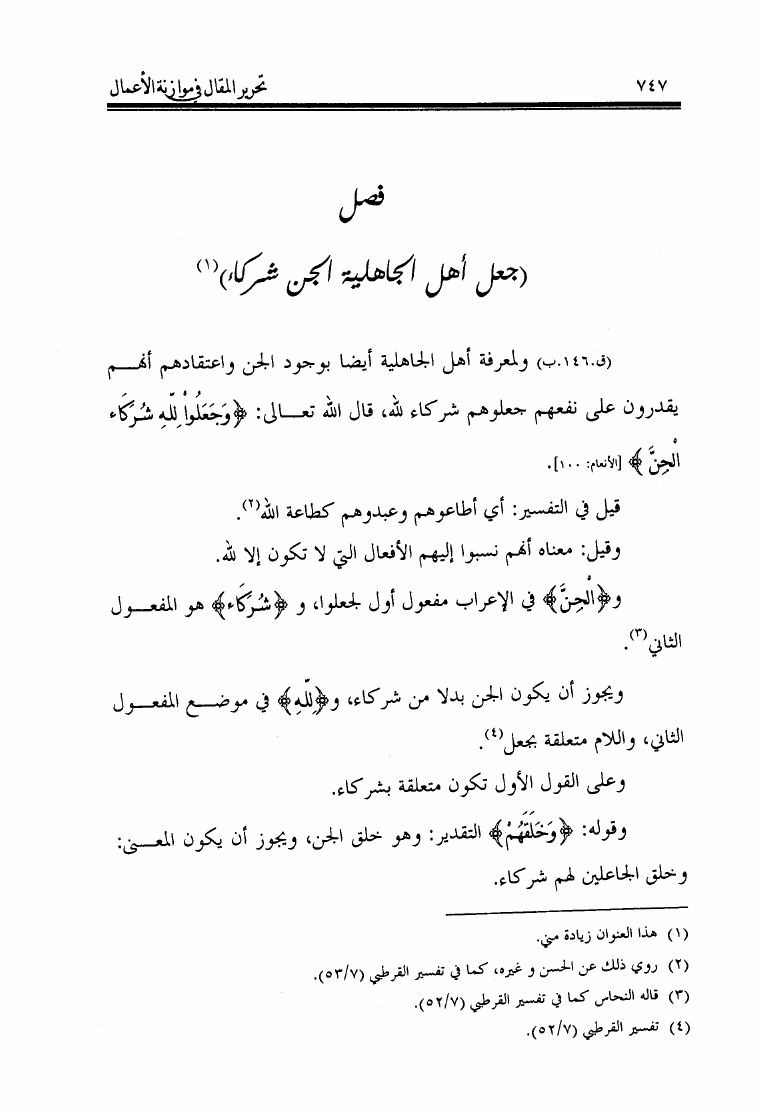 ٧٤٧ تحرير المقال في موازنة الأعمال
فصل
(جعل أهل الجاهلية الجن شركاء)(١)
(ق.١٤٦.ب) ولمعرفة أهل الجاهلية أيضا بوجود الجن واعتقادهم أنهـــم
يقدرون على نفعهم جعلوهم شركاء لله، قال الله تعـــالى: ﴿وَجَعَلُواْ لِلّهِ شُرَكَاء
الْجِنَّ﴾ [الأنعام: ١٠٠].
قيل في التفسير: أي أطاعوهم وعبدوهم كطاعة الله(٢).
وقيل: معناه أنهم نسبوا إليهم الأفعال التي لا تكون إلا لله.
و﴿الْجِنَّ﴾ في الإعراب مفعول أول لجعلوا، و ﴿شُرَكَاء﴾ هو المفعـــول
الثاني(٣).
ويجوز أن يكون الجن بدلا من شركاء، و﴿لِلّهِ﴾ في موضـــع المفعـــول
الثاني، واللام متعلقة بجعل(٤).
وعلى القول الأول تكون متعلقة بشركاء.
وقوله: ﴿وَخَلَقَهُمْ﴾ التقدير: وهو خلق الجن، ويجوز أن يكون المعـــنى:
وخلق الجاعلين لهم شركاء.
(١) هذا العنوان زيادة مني.
(٢) روي ذلك عن الحسن و غيره، كما في تفسير القرطبي (٥٣/٧).
(٣) قاله النحاس كما في تفسير القرطبي (٥٢/٧).
(٤) تفسير القرطبي (٥٢/٧).